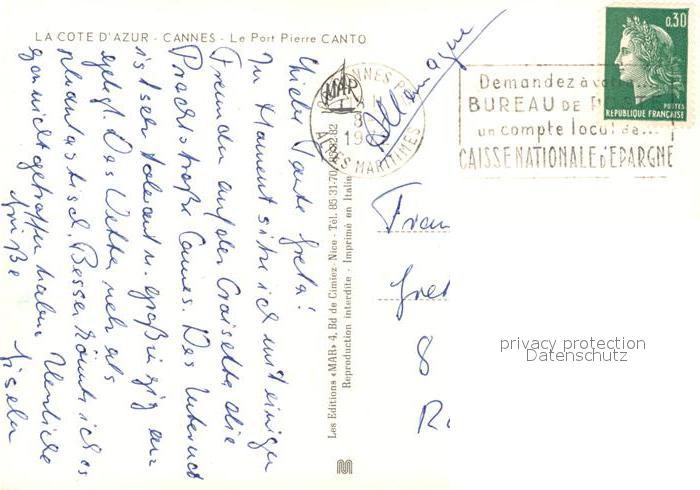 LA COTE D'AZUR - CANNES - Le Port Pierre CANTO
Liebe Tante Greta!
Im Moment sitze ich mit einigen
Freunden auf der Croisette, die
Prachtstraße Cannes. Das Internat
ist sehr tolerant u. großzügig an-
gelegt. Das Wetter mehr als
phantastisch. Besser könnte ich es
gar nicht getroffen haben. Herzliche
Grüße
Gisela
Les Editions «MAR» 4, Bd de Cimiez - Nice - Tél. 85 31-70
Reproduction interdite - Imprimé en Italie
MAR
CANNES
ALPES MARITIMES
Allemagne
Demandez à
BUREAU DE
un compte local de...
CAISSE NATIONALE D'EPARGNE
0,30
POSTES
REPUBLIQUE FRANÇAISE
Frau
Gret
8
privacy protection
Datenschutz